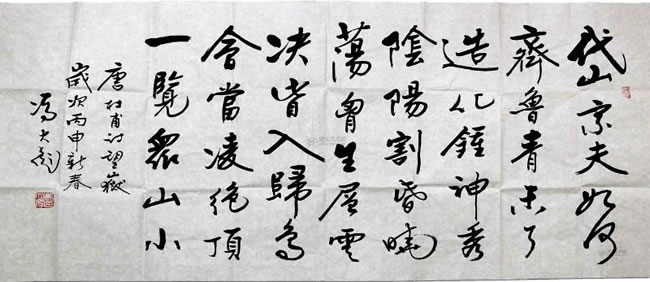 岱宗夫如何
齊魯青未了
造化鍾神秀
陰陽割昏曉
蕩胷生層雲
决眥入歸鳥
會當凌絶頂
一覽眾山小
唐杜甫詩望嶽
歲次丙申新春
馮大彪